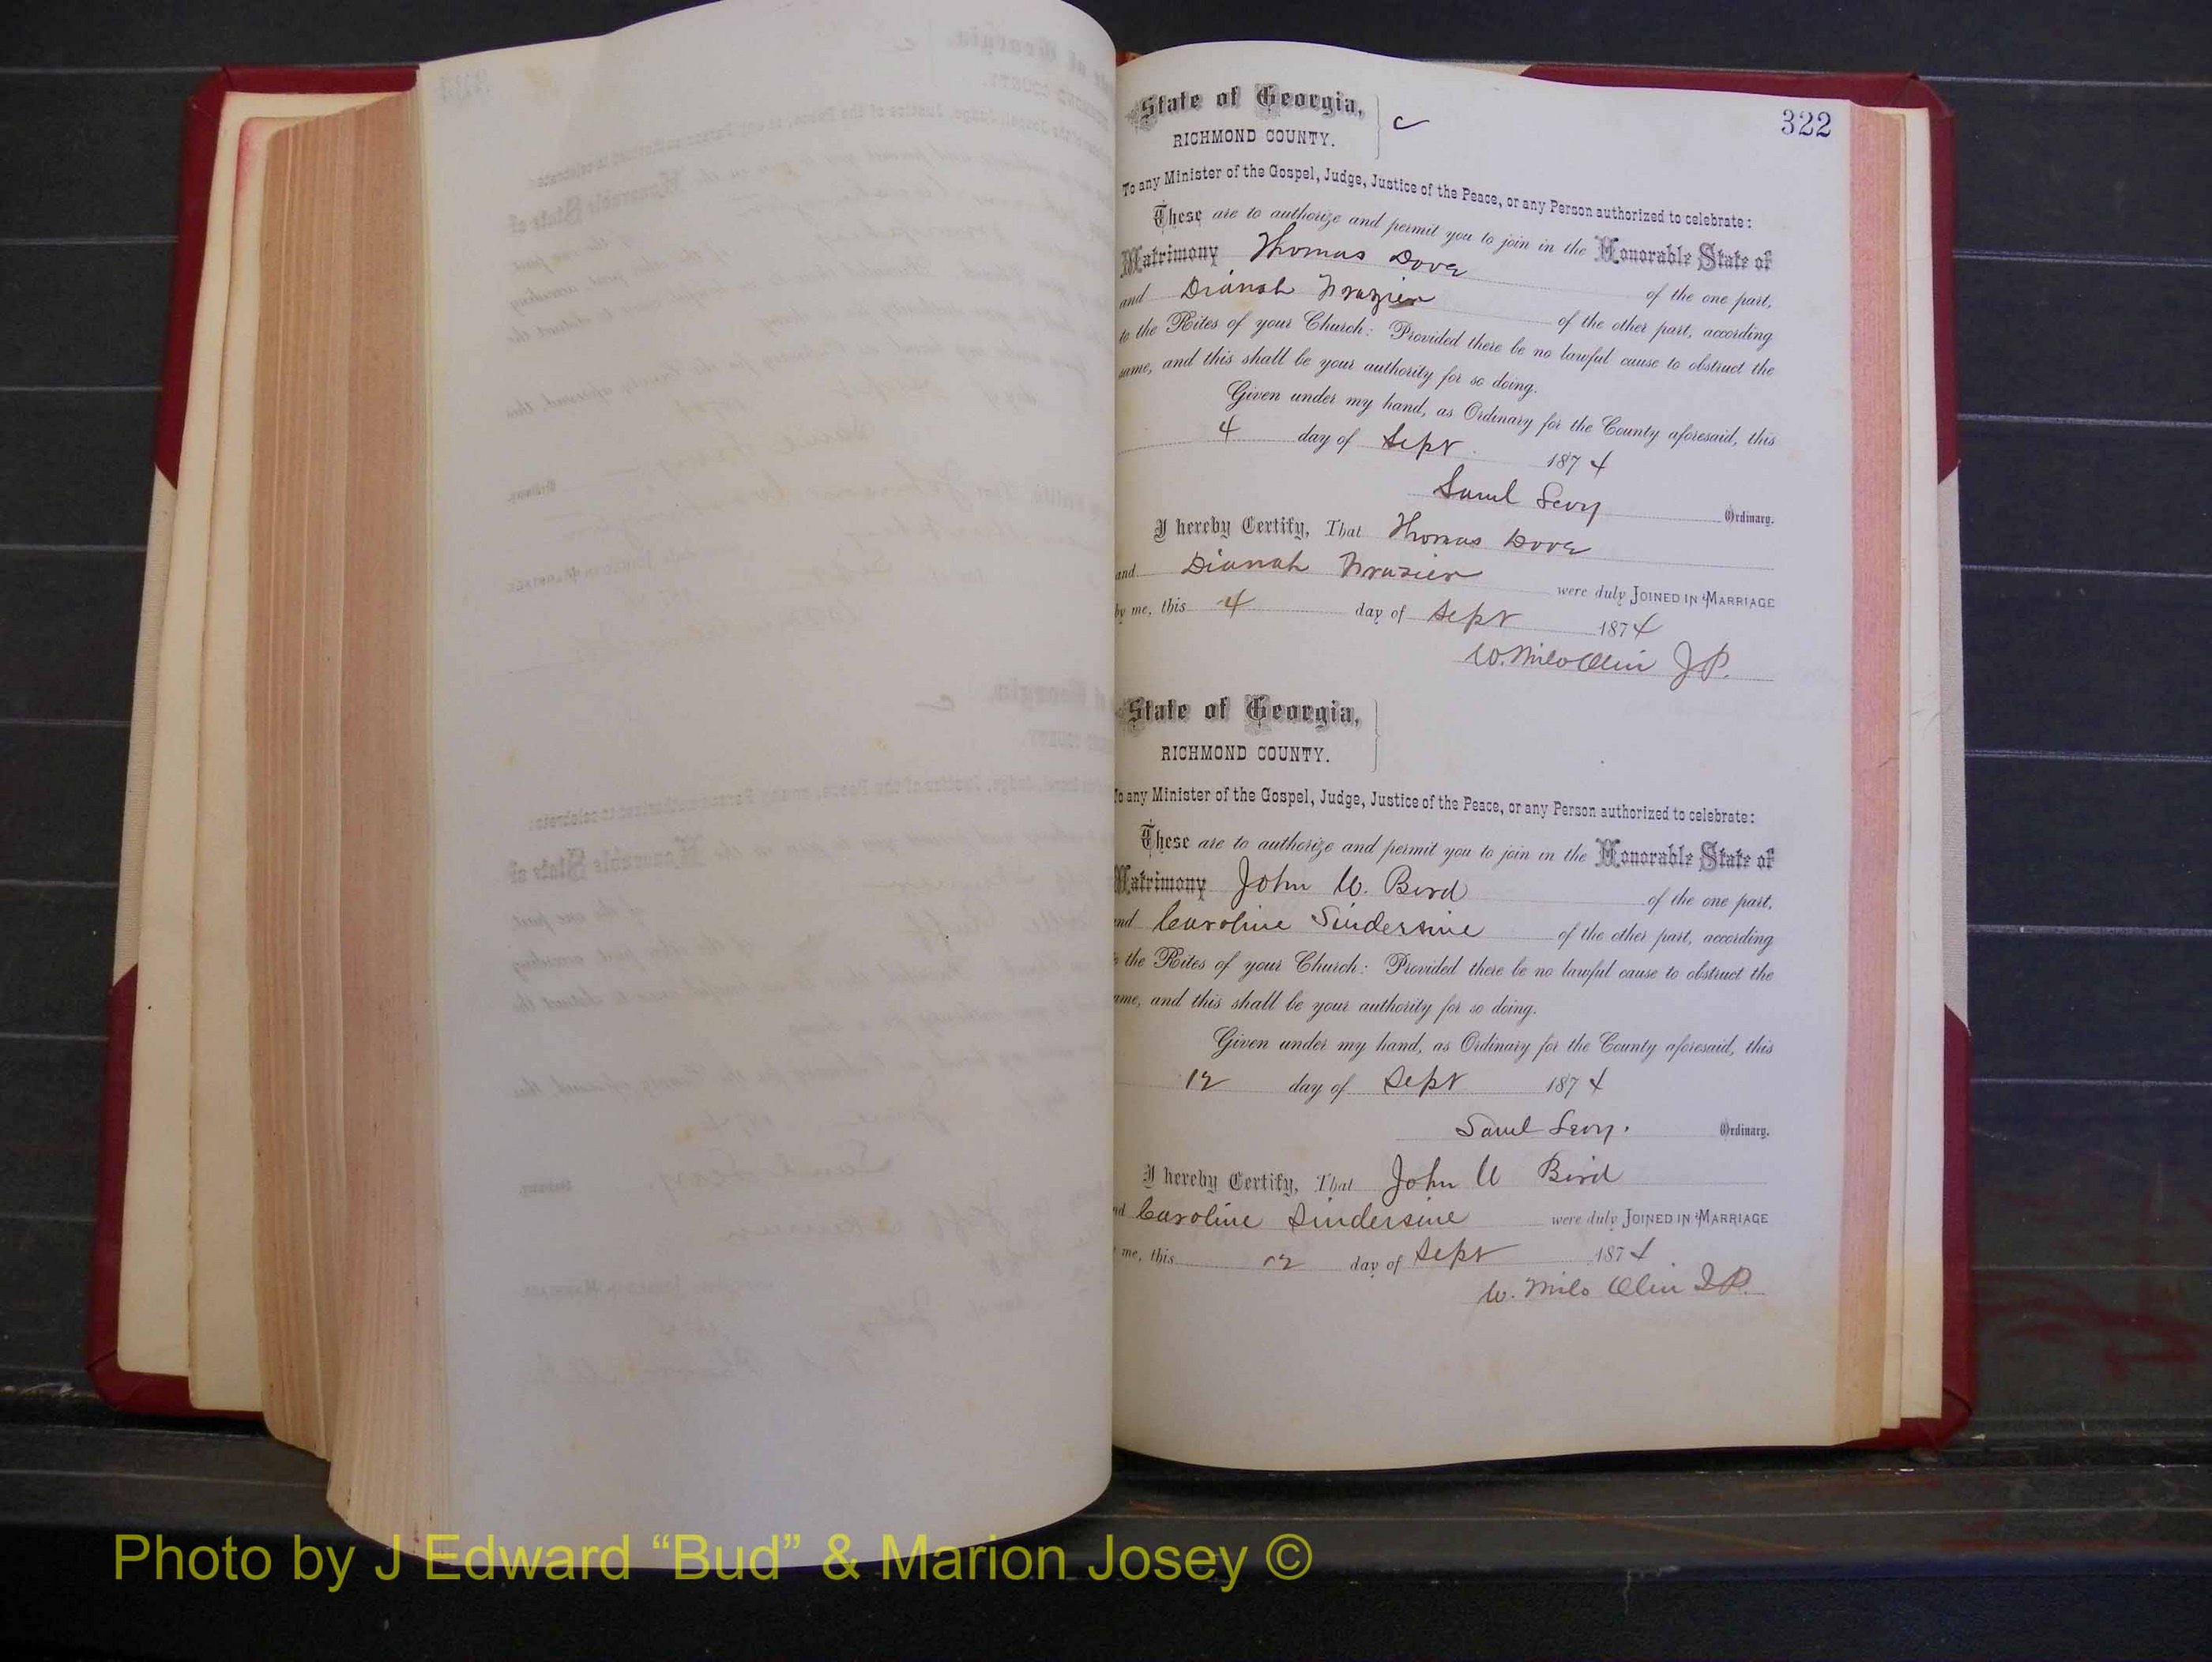 322
State of Georgia,
RICHMOND COUNTY.
To any Minister of the Gospel, Judge, Justice of the Peace, or any Person authorized to celebrate:
These are to authorize and permit you to join in the Honorable State of
Matrimony Thomas Dove of the one part,
and Dianah Frazier of the other part, according
to the Rites of your Church: Provided there be no lawful cause to obstruct the
same, and this shall be your authority for so doing.
Given under my hand, as Ordinary for the County aforesaid, this
4 day of Sept 1874
Saml Levy Ordinary.
I hereby Certify, That Thomas Dove
and Dianah Frazier were duly JOINED IN MARRIAGE
by me, this 4 day of Sept 1874
W. Milo Olin J P.
State of Georgia,
RICHMOND COUNTY.
To any Minister of the Gospel, Judge, Justice of the Peace, or any Person authorized to celebrate:
These are to authorize and permit you to join in the Honorable State of
Matrimony John W. Bird of the one part,
and Caroline Sindersine of the other part, according
the Rites of your Church: Provided there be no lawful cause to obstruct the
ame, and this shall be your authority for so doing.
Given under my hand, as Ordinary for the County aforesaid, this
12 day of Sept 1874
Saml Levy. Ordinary.
I hereby Certify, That John W Bird
nd Caroline Sindersine were duly JOINED IN MARRIAGE
me, this 12 day of Sept 1874
W. Milo Olin J P.
Photo by J Edward “Bud” & Marion Josey ©